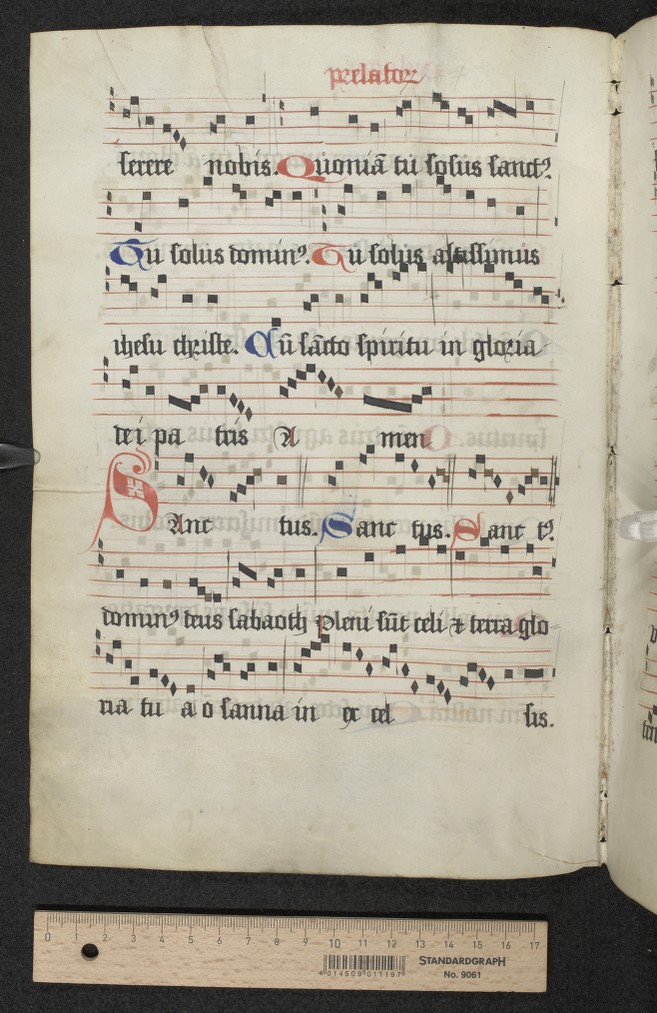 serere nobis. Quoniā tu solus sanctꝰ
Tu solus dominꝰ. Tu solus altissimus
ihesu christe. Cū sācto spiritu in gloria
dei pa tris A men
SAnc tus. Sanc tus. Sanc tꝰ
dominꝰ deus sabaoth pleni sūt celi ⁊ terra glo
ria tu a o sanna in ex cel sis.
0 1 2 3 4 5 6 7 8 9 10 11 12 13 14 15 16 17
4 014509 011197
STANDARDGRAPH
No. 9061